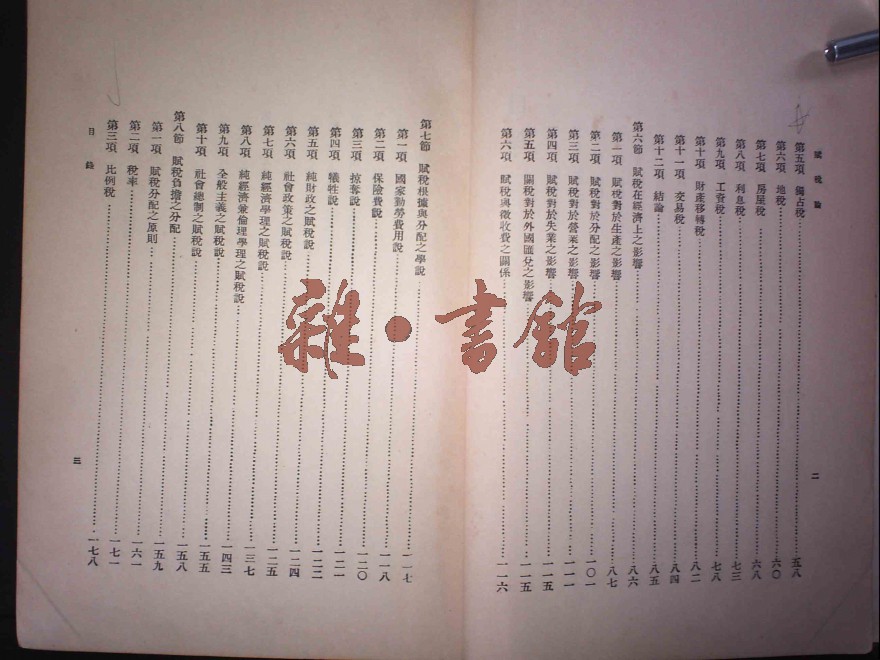 賦稅論
第五項 獨占稅 五八
第六項 地稅 六〇
第七項 房屋稅 六八
第八項 利息稅 七三
第九項 工資稅 七八
第十項 財產移轉稅 八二
第十一項 交易稅 八四
第十二項 結論 八五
第六節 賦稅在經濟上之影響 八六
第一項 賦稅對於生產之影響 八七
第二項 賦稅對於分配之影響 一〇一
第三項 賦稅對於營業之影響 一一一
第四項 賦稅對於失業之影響 一一五
第五項 關稅對於外國匯兌之影響 一一五
第六項 賦稅與徵收費之關係 一一六
二
第七節 賦稅根據與分配之學說 一一七
第一項 國家勤勞費用說 一一八
第二項 保險費說 一一八
第三項 掠奪說 一二〇
第四項 犧牲說 一二一
第五項 純財政之賦稅說 一二二
第六項 社會政策之賦稅說 一二四
第七項 純經濟學理之賦稅說 一二五
第八項 純經濟兼倫理學理之賦稅說 一三七
第九項 全般主義之賦稅說 一四三
第十項 社會總制之賦稅說 一五五
第八節 賦稅負擔之分配 一五八
第一項 賦稅分配之原則 一五九
第二項 稅率 一六一
第三項 比例稅 一七一
一七八
目錄
三
雜·書館